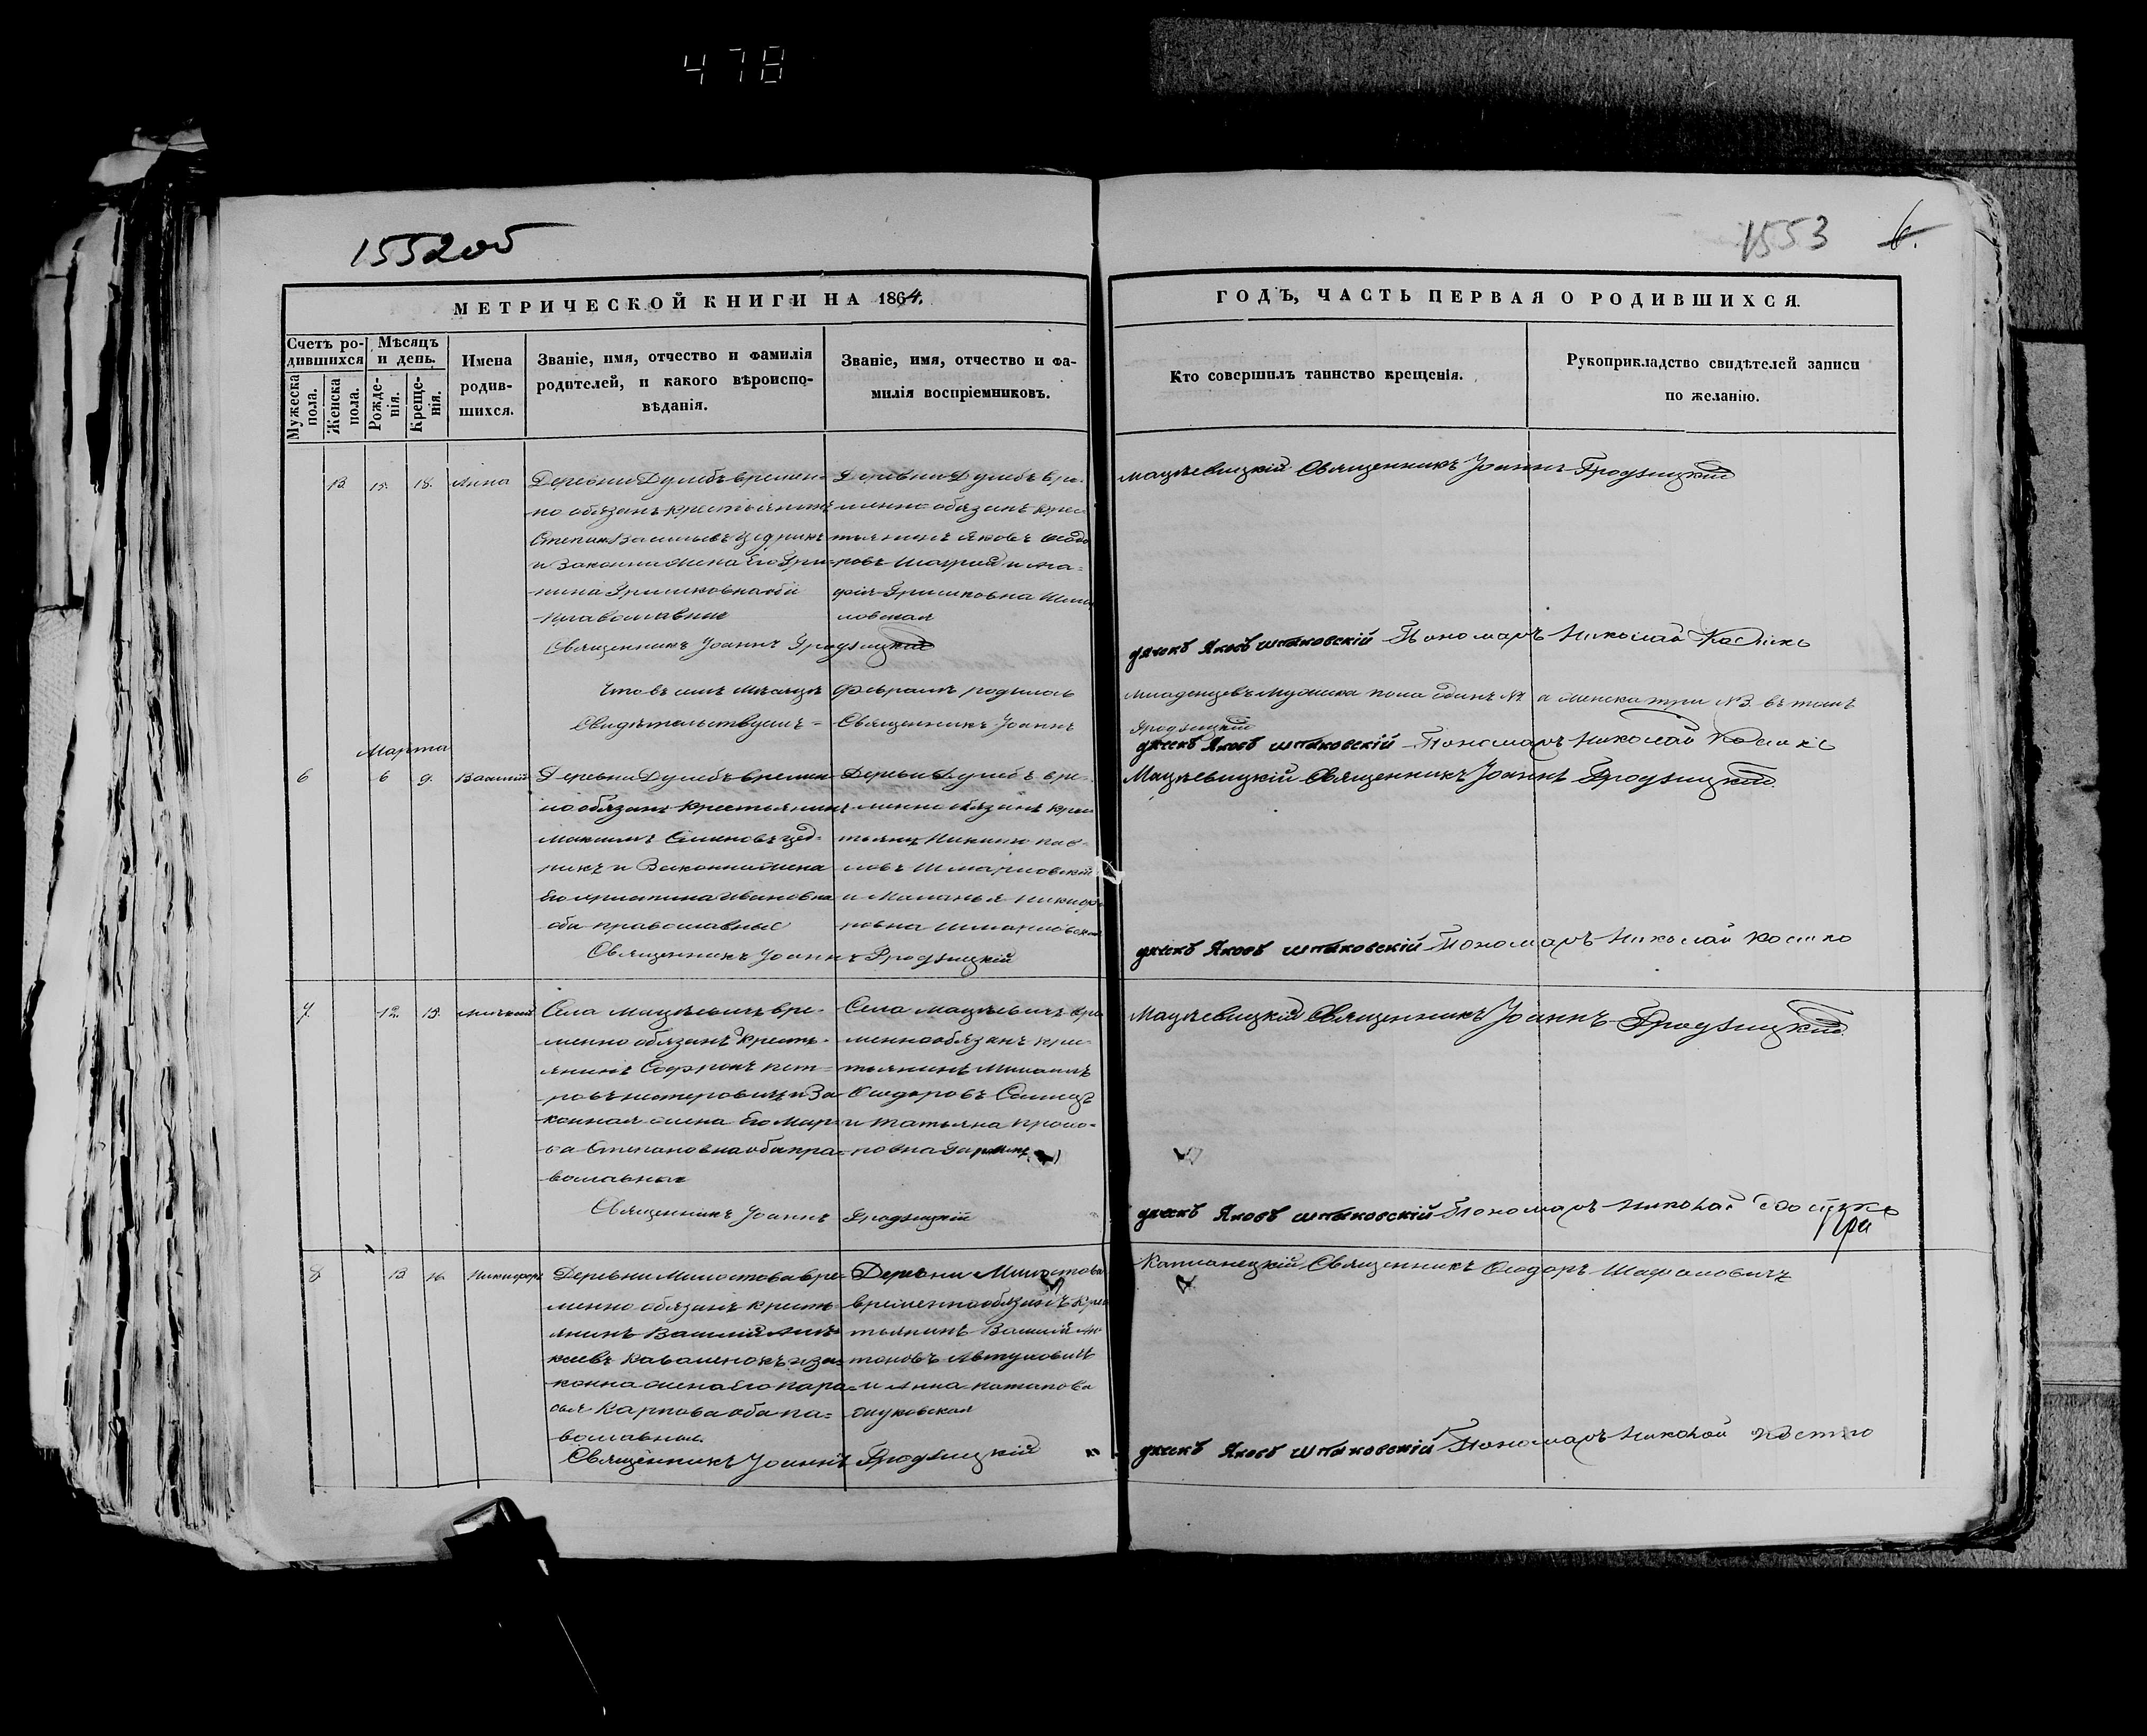 478
1552об
1553 6.
МЕТРИЧЕСКОЙ КНИГИ НА 1864.
ГОДЪ, ЧАСТЬ ПЕРВАЯ О РОДИВШИХСЯ.
Счетъ ро-
дившихся
Мужеска
пола.
Женска
пола.
Мѣсяцъ
и день.
Рожде-
нія.
Креще-
нія.
Имена
родив-
шихся.
Званіе, имя, отчество и фамилія
родителей, и какого вѣроиспо-
вѣданія.
Званіе, имя, отчество и фа-
милія воспріемниковъ.
Кто совершилъ таинство крещенія.
Рукоприкладство свидѣтелей записи
по желанію.
13. 15. 18. Анна
Деревни Дулебъ времен-
но обязанъ крестьянинъ
Степан Васильевъ
и законная жена его
православные
Священникъ Іоаннъ Гродзицкій
Деревни Дулебъ вре-
менно обязанъ крес-
тьянинъ Яковъ
Мацѣевицкій Священникъ Іоаннъ Гродзицкій
дьячекъ Яковъ Шпаковскій Пономаръ Николай Костко
Что въ семъ мѣсяцѣ Февралѣ родилось
младенцевъ мужеска пола одинъ №1 а женска три №3. въ томъ
Свидѣтельствуемъ = Священникъ Іоаннъ
Гродзицкій
дьячекъ Яковъ Шпаковскій Пономаръ Николай Костко
Марта
6 6 9. Василій
Деревни Дулебъ времен-
но обязанъ крестьянинъ
Максимъ Семеновъ Цед-
никъ и законная жена
его Христина Ивановна
оба православные
Священникъ Іоаннъ Гродзицкій
Деревни Дулебъ вре-
менно обязанъ крес-
тьянинъ Никита Пав-
ловъ
и Меланья Никифо-
ровна
Мацѣевицкій Священникъ Іоаннъ Гродзицкій
дьячекъ Яковъ Шпаковскій Пономаръ Николай Костко
7. 12. 15. Алексій
Села Мацѣевичъ вре-
менно обязанъ кресть-
янинъ Софронъ Пет-
ровъ Нестеровичъ и за-
конная жена его Мар-
ѳа Степановна оба пра-
вославные
Священникъ Іоаннъ Гродзицкій
Села Мацѣевичъ вре-
менно обязанъ крес-
тьянинъ Михаилъ
Сидоровъ
и Татьяна Прохо-
ровна
Мацѣевицкій Священникъ Іоаннъ Гродзицкій
дьячекъ Яковъ Шпаковскій Пономаръ Николай Костко
8. 13. 16. Никифоръ
Деревни Милостова вре-
менно обязанъ кресть-
янинъ Василій Алек-
сеевъ Кавалёнокъ и за-
конна жена его Пара-
сья Карпова оба пра-
вославные.
Священникъ Іоаннъ Гродзицкій
Деревни Милостова
временно обязанъ крес-
тьянинъ Василій Ан-
тоновъ Автуховичъ
и Анна Потапова
Капланецкій Священникъ Ѳеодоръ Шафаловичъ
дьячекъ Яковъ Шпаковскій Пономаръ Николай Костко